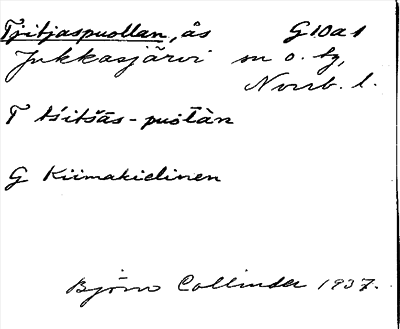 Tjitjaspuollan, ås G10a1
Jukkasjärvi sn o. tg,
Norrb. l.
T tśitšàs-puo̅làn
G Kiimakielinen
Björn Collinder 1937.